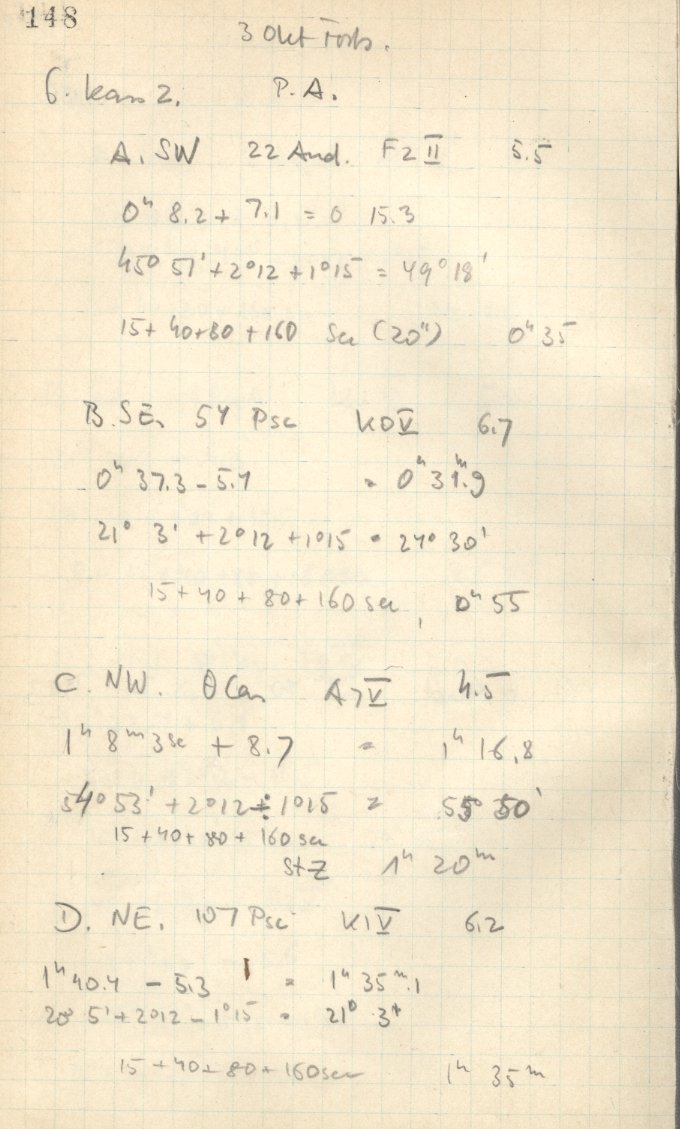 148
3 Okt Forts.
6. kass 2. P.A.
A. SW 22 And. F2 II 5.5
0ʰ 8.2 + 7.1 = 0 15.3
45° 51' + 2°12 + 1°15 = 49°18'
15 + 40 + 80 + 160 sec (20ʰ) 0ʰ 35
B. SE. 54 Psc K0 V 6.7
0ʰ 37.3 - 5.4 = 0ʰ 31ᵐ.9
21° 3' + 2°12 + 1°15 = 24° 30'
15 + 40 + 80 + 160 sec, 0ʰ 55
C. NW. θ Cas A7 V 4.5
1ʰ 8ᵐ 3 sec + 8.7 = 1ʰ 16.8
54° 53' + 2°12 ÷ 1°15 = 55° 50'
15 + 40 + 80 + 160 sec
StZ 1ʰ 20ᵐ
D. NE. 107 Psc K1 V 6.2
1ʰ 40.4 - 5.3 = 1ʰ 35ᵐ.1
20° 5' + 2°12 - 1°15 = 21° 3'
15 + 40 + 80 + 160 sec 1ʰ 35ᵐ